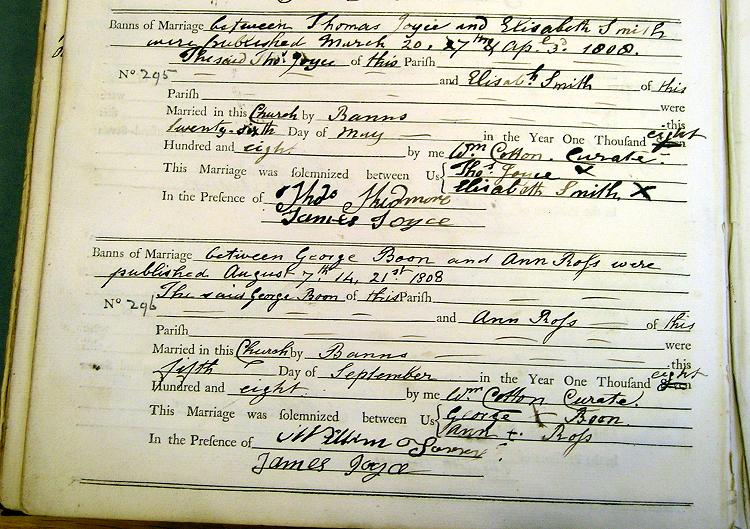 Banns of Marriage between Thomas Joyce and Elisabeth Smith
were published March 20. 27th & Ap. 3d. 1808.
The said Thos. Joyce of this Parish
No 295 and Elisabth Smith of this
Parish were
Married in this Church by Banns this
twenty-sixth Day of May in the Year One Thousand eight
Hundred and eight by me Wm Cotton. Curate.
This Marriage was solemnized between Us Thos. Joyce X
Elisabeth Smith, X
In the Presence of Thos
James Joyce
Banns of Marriage between George Boon and Ann Rofs were
published August 7th 14, 21st 1808
The said George Boon of this Parish
No 296 and Ann Rofs of this
Parish were
Married in this Church by Banns this
fifth Day of September in the Year One Thousand eight
Hundred and eight. by me Wm Cotton Curate.
This Marriage was solemnized between Us George + Boon
Ann +. Rofs
In the Presence of William
James Joyce